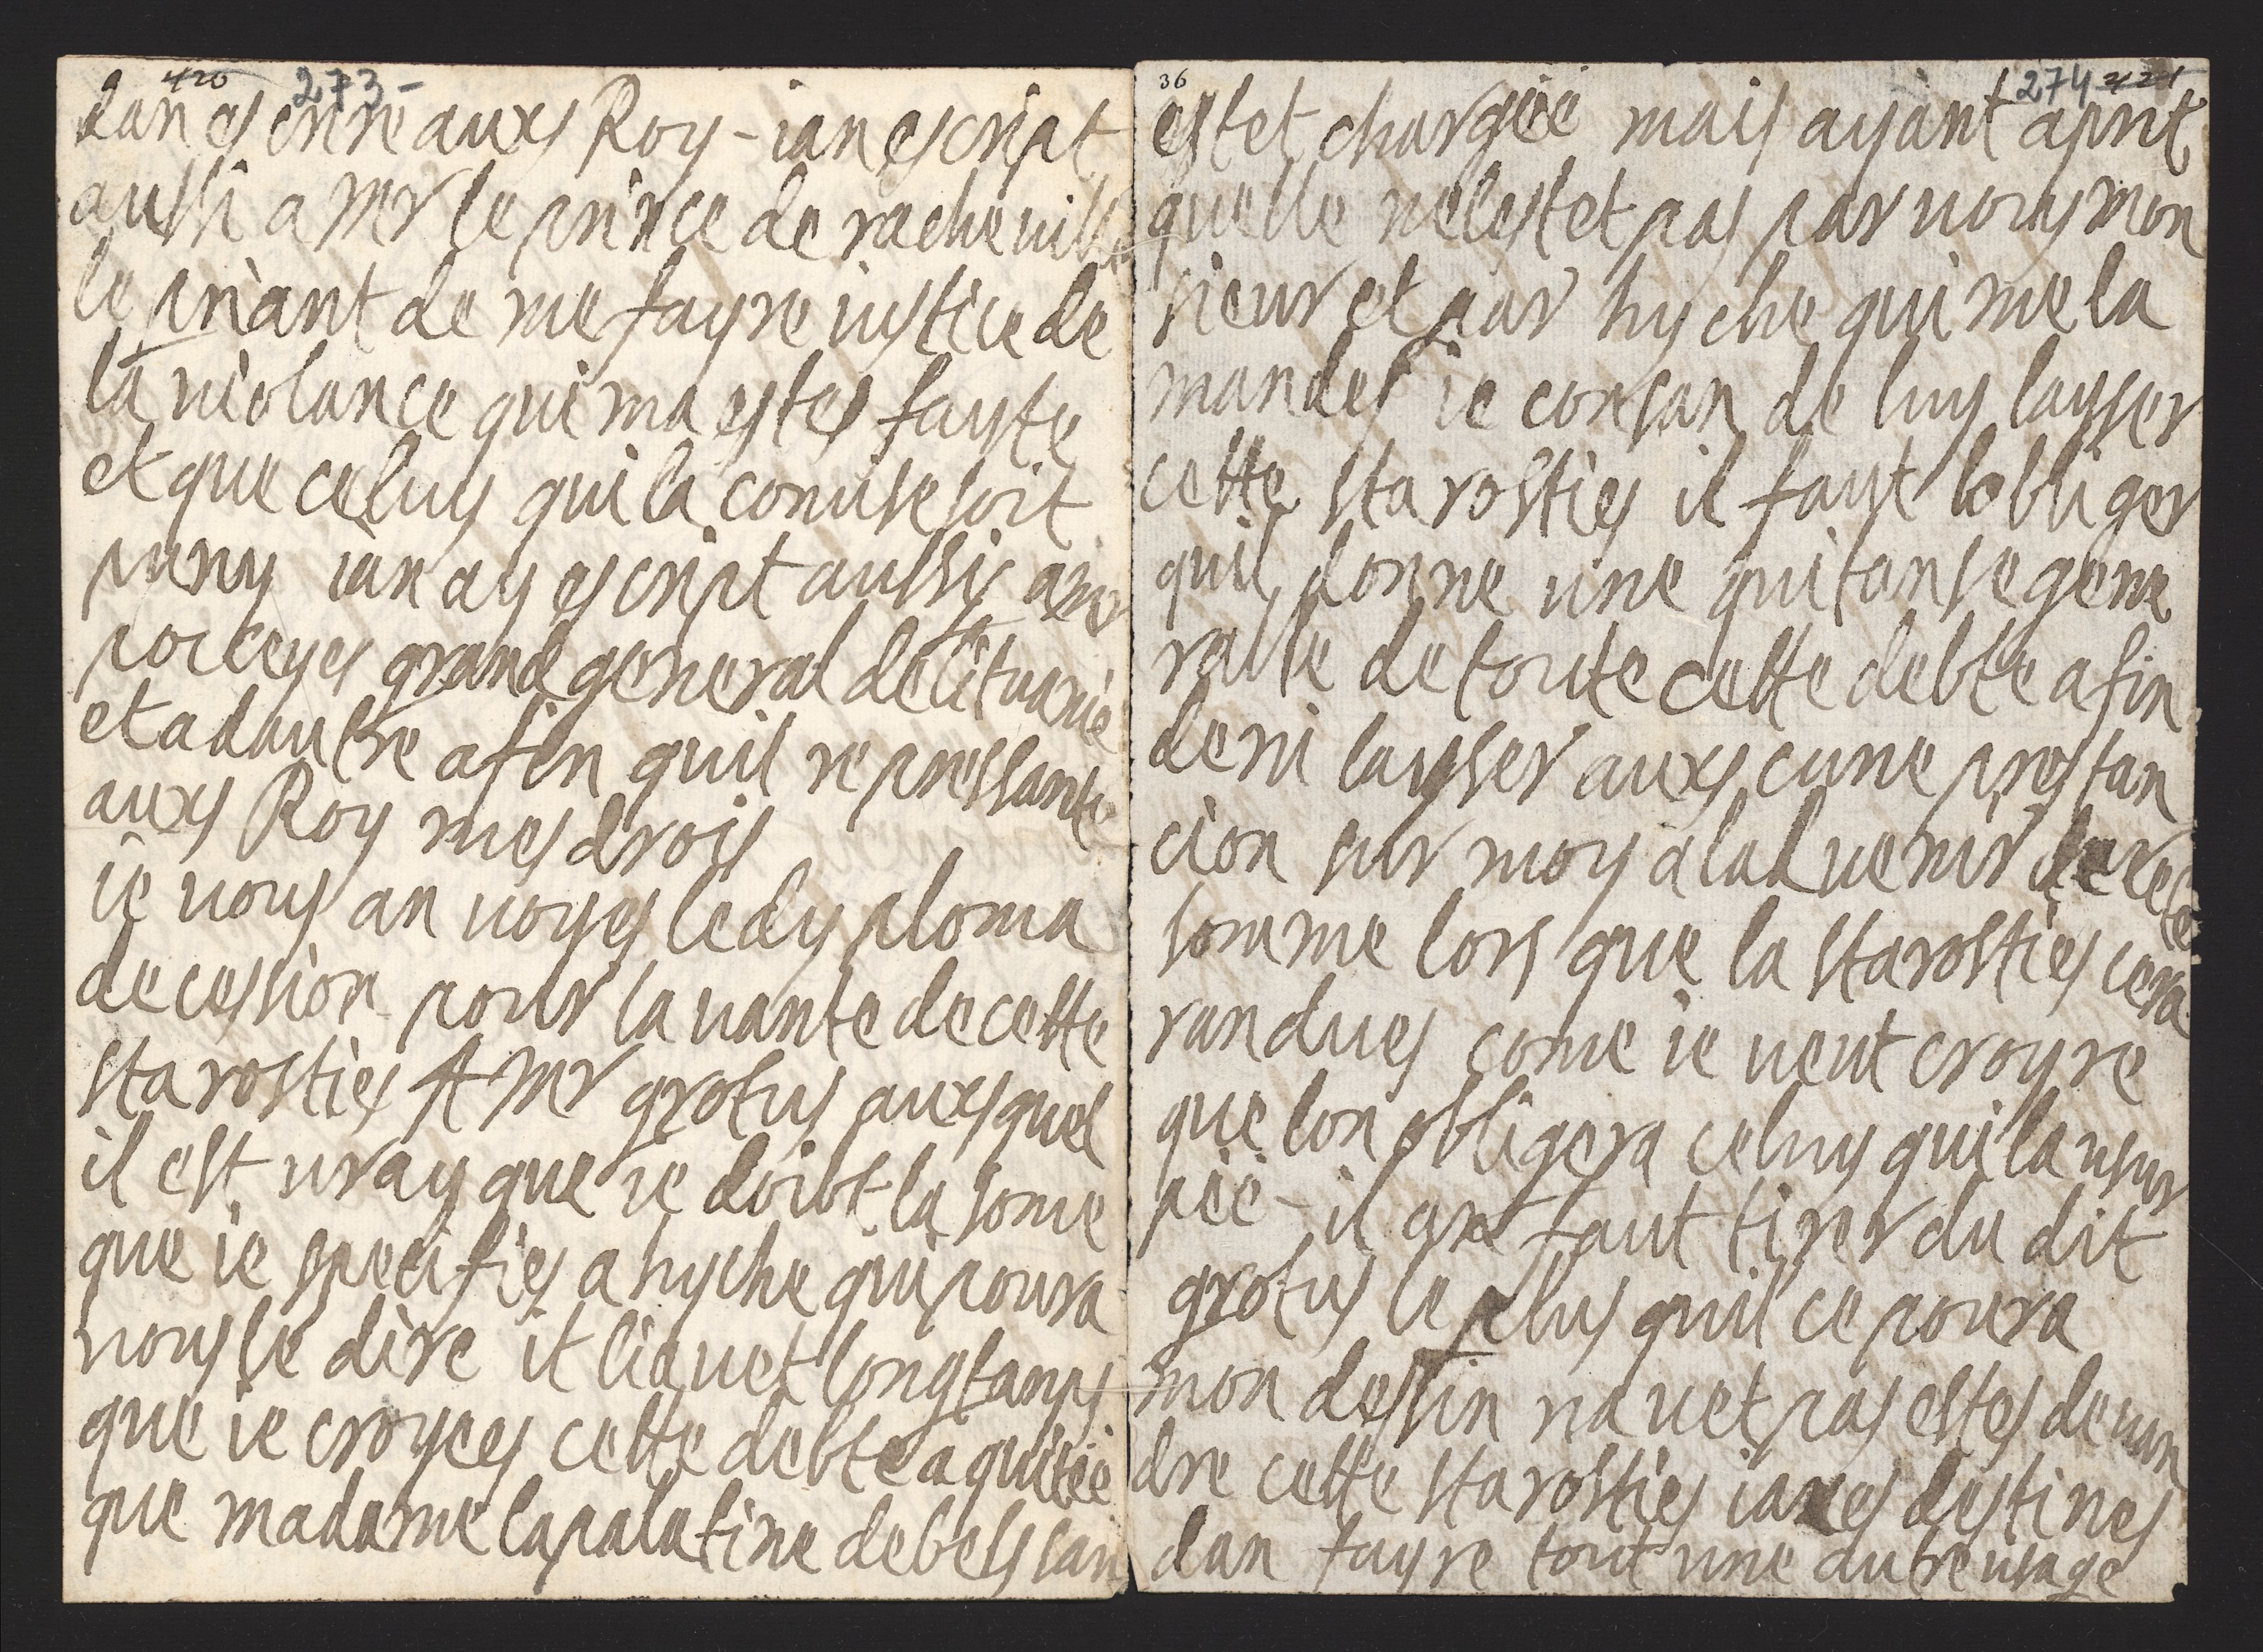 420 273-
dan escrire auxs Roy - ian escript
aussi a Mr le prince de rachevill
le priant de me fayre iustice de
la violance qui ma estes fayte
et que celuy qui la comise soit
puny ian ay escript aussi a mr
pocceyes grand general de lituanie
et a dautre afin quil represante
auxs Roy mes drois
ie vous an voyes le dyploma
de cession pour la vante de cette
starosties A Mr grotus auxsquel
il est vray que ie doibt la some
que ie specifies a hyche qui poura
vous le dire it liavet longtamps
que ie croyees cette debte aquitéé
que madame la palatine de bels san
36 274 421
estet chargéé mais ayant aprit
quelle nelestet pas par vous mon
sieur et par hyche qui me la
mandes ie consan de luy laysser
cette starosties il fayt lobliger
quil donne une quitanse gene
ralle de toute cette debte afin
de ni laysser auxs cune prestan
cion sur moy a lad venir de cete
somme lors que la starosties cera
randues come ie veut croyre
que lon obligera celuy qui la usur
péé - il ant faut tirer du dit
grotus le plus quil ce poura
mon dessin navet pas estes de van
dre cette starosties iaves destines
dan fayre tout une autre usage